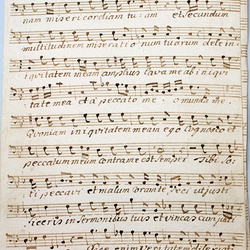 nam misericordiam tuam et secundum
multitudinem miserationum tuarum dele in
iquitatem meam amplius lava me ab iniqui
tate mea et a peccato meo munda me
Quoniam iniquitatem meam ego cognosco et
peccatum meum contra me est semper Tibi so
ti peccavi et malum coram te feci ut justi
ficeris in sermonibus tuis et vincas cum judi
Ecce enim veritatem dilexi